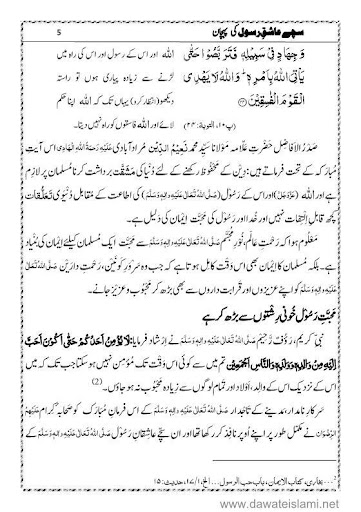 5 سچے عاشقِ رسول کی پہچان
وَ جِهَادٍ فِیْ سَبِیْلِهٖ فَتَرَبَّصُوْا حَتّٰى
یَاْتِیَ اللّٰهُ بِاَمْرِهٖؕ-وَ اللّٰهُ لَا یَهْدِی
الْقَوْمَ الْفٰسِقِیْنَ۠
(پ۱۰، التوبۃ: ۲۴)
اللہ اور اس کے رسول اور اس کی راہ میں
لڑنے سے زیادہ پیاری ہوں تو راستہ
دیکھو (انتظار کرو) یہاں تک کہ اللہ اپنا حکم
لائے اور اللہ فاسقوں کو راہ نہیں دیتا۔
صَدْرُ الْاَفاضِل حضرتِ علّامہ مولانا سَیِّد محمد نعیمُ الدّین مُراد آبادی عَلَیْہِ رَحمَۃُ اللہِ الْہَادِی اس آیتِ
مُبارَکہ کے تحت فرماتے ہیں: دِین کے محفوظ رکھنے کے لئے دُنیا کی مَشَقَّت برداشت کرنا مُسلمان پر لازِم
ہے اور اللہ (عَزَّوَجَلَّ) اور اس کے رَسُول (صَلَّی اللہُ تَعَالٰی عَلَیْہِ وَاٰلِہٖ وَسَلَّم) کی اطاعت کے مقابل دُنیوی تعلُّقات
کچھ قابلِ اِلتِفات نہیں اور خُدا اور رَسُول کی مَحَبَّت ایمان کی دلیل ہے۔
معلوم ہوا کہ رحمتِ عالَم، نورِ مُجَسَّم صَلَّی اللہُ تَعَالٰی عَلَیْہِ وَاٰلِہٖ وَسَلَّم کی مَحَبَّت ایک مُسلمان کیلئے ایمان کی بُنیاد
ہے۔ بلکہ مُسلمان کا ایمان بھی اس وَقْت کامل ہوتا ہے کہ جب وہ سَروَرِ کونین، رحمتِ دارَین صَلَّی اللہُ تَعَالٰی
عَلَیْہِ وَاٰلِہٖ وَسَلَّم کو اپنے عزیزوں اور قرابت داروں سے بھی بڑھ کر محبوب و عزیز جانے۔
محبتِ رسول خونی رِشتوں سے بڑھ کر ہے
نبی کریم، رَؤُفٌ رَّحیم صَلَّی اللہُ تَعَالٰی عَلَیْہِ وَاٰلِہٖ وَسَلَّم نے ارشاد فرمایا: لَا یُؤْمِنُ اَحَدُکُمْ حَتّٰی اَکُوْنَ اَحَبَّ
اِلَیْہِ مِنْ وَّالِدِہٖ وَوَلَدِہٖ وَالنَّاسِ اَجْمَعِیْن تم میں سے کوئی اس وَقْت تک مُؤمِن نہیں ہوسکتا جب تک کہ میں
اس کے نزدیک اس کے والِد، اَوْلاد اور تمام لوگوں سے زیادہ محبوب نہ ہو جاؤں۔(2)
سرکارِ نامدار، مدینے کے تاجدار صَلَّی اللہُ تَعَالٰی عَلَیْہِ وَاٰلِہٖ وَسَلَّم کے اس فرمانِ مُبارَک کو صحابۂ کِرام عَلَیْہِمُ
الرِّضْوَان نے مکمل طور پر اپنے اُوپر نافِذ کر رکھا تھا اور ان سچے عاشقانِ رسول صَلَّی اللہُ تَعَالٰی عَلَیْہِ وَاٰلِہٖ وَسَلَّم کے
2 … بخاری، کتاب الایمان، باب حب الرسول … الخ، ۱/۱۷، حدیث: ۱۵
www.dawateislami.net